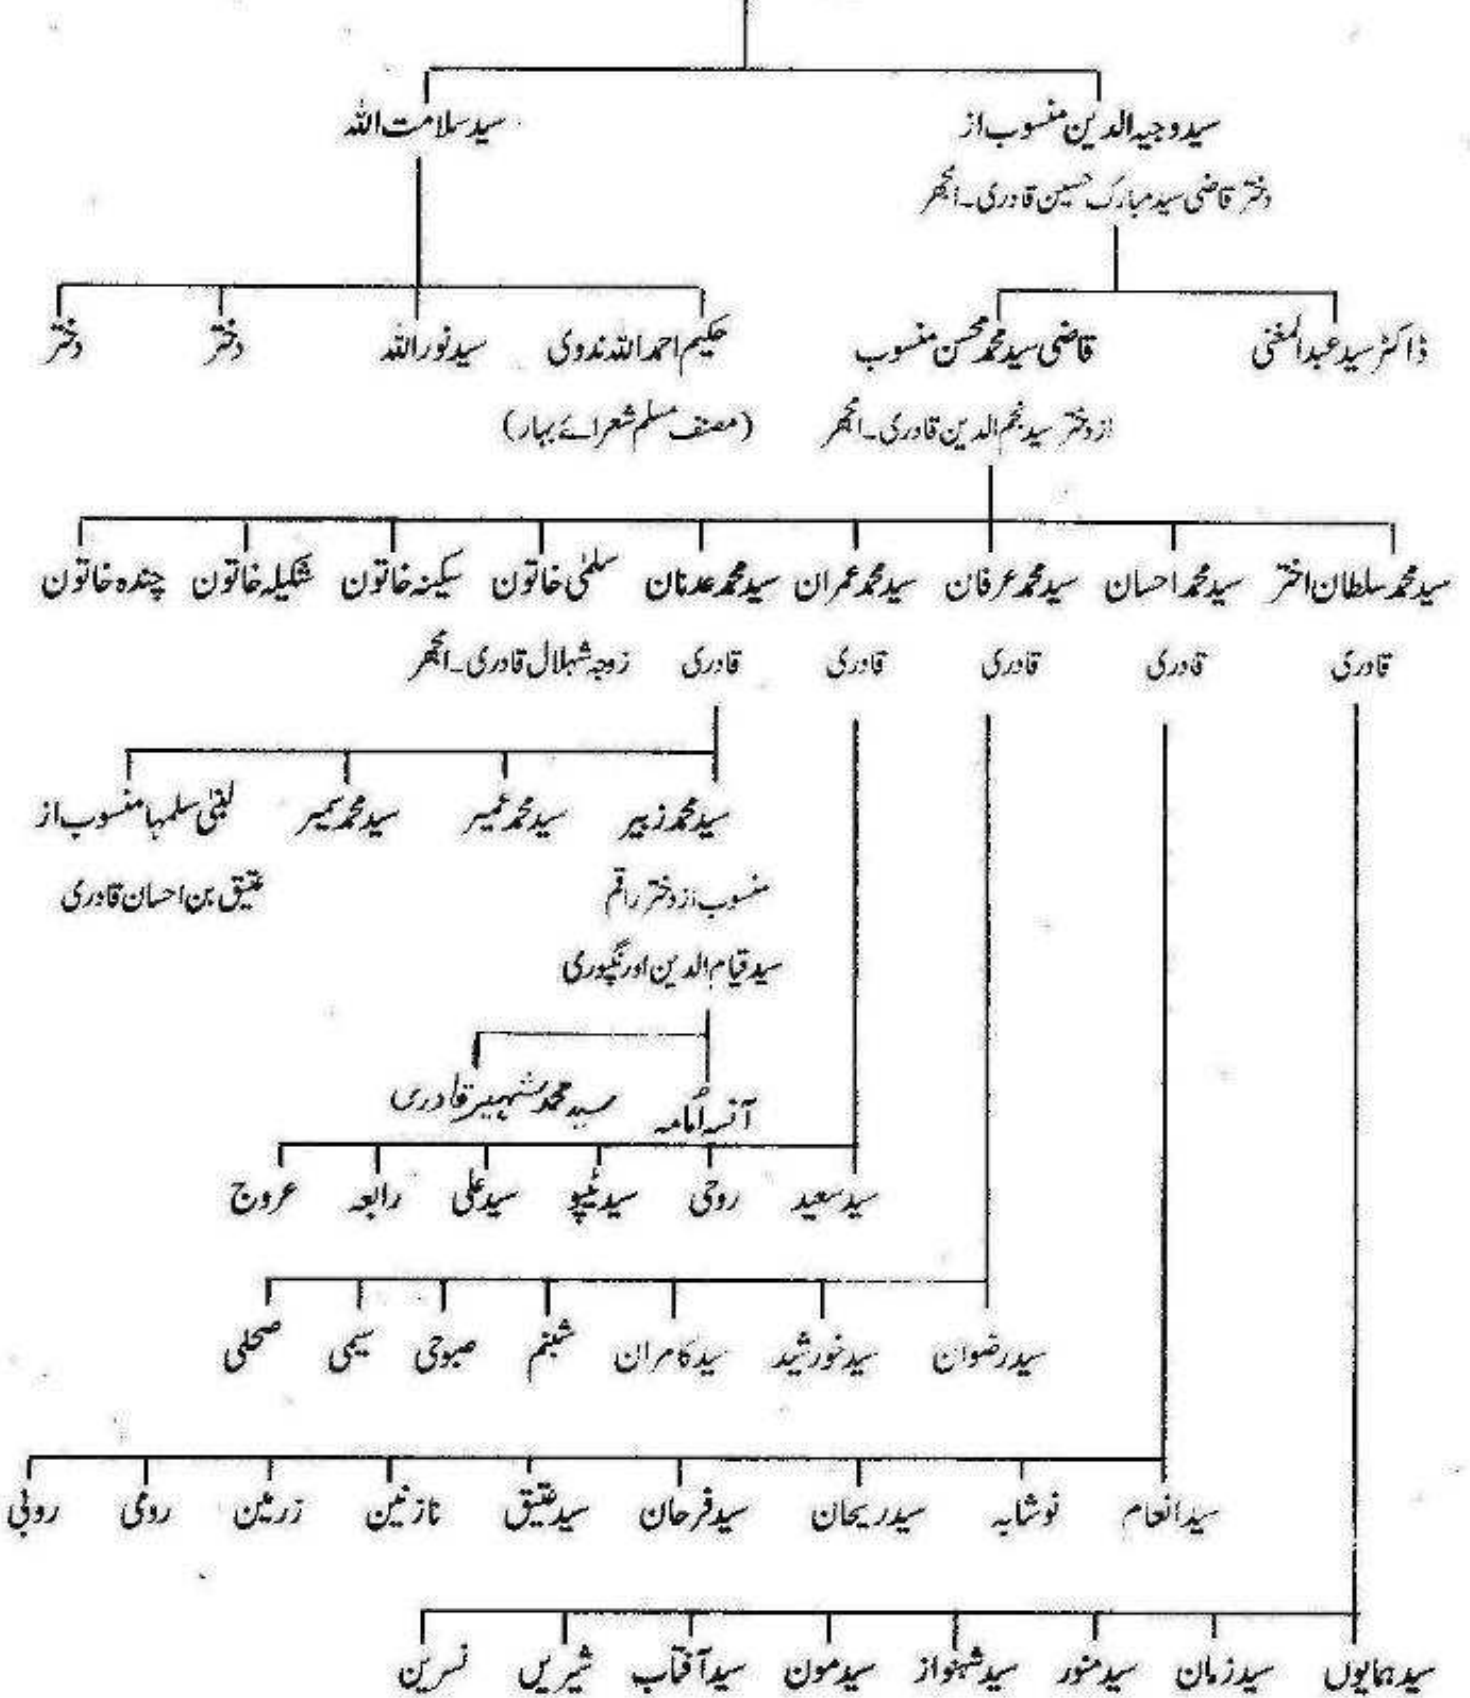 سید وجیہ الدین منسوب از
دختر قاضی سید مبارک حسین قادری۔ انجھر
سید سلامت اللہ
ڈاکٹر سید عبدالمغنی
قاضی سید محمد محسن منسوب
از دختر سید نجم الدین قادری۔ انجھر
حکیم احمد اللہ ندوی
(مصنف مسلم شعرائے بہار)
سید نور اللہ
دختر
دختر
سید محمد سلطان اختر
قادری
سید محمد احسان
قادری
سید محمد عرفان
قادری
سید محمد عمران
قادری
سید محمد عدنان
قادری
سلمٰی خاتون
زوجہ شہلال قادری۔ انجھر
سکینہ خاتون
شکیلہ خاتون
چندہ خاتون
سید محمد زبیر
منسوب از دختر راقم
سید قیام الدین اورنگپوری
سید محمد عمیر
سید محمد سمیر
لبنٰی سلمہا منسوب از
عتیق بن احسان قادری
آنسہ اُمامہ
سید محمد شہیر قادری
سید سعید
روحی
سید ٹیپو
سید علی
رابعہ
عروج
سید رضوان
سید خورشید
سید کامران
شبنم
صبوحی
سیمی
سید انعام
نوشابہ
سید ریحان
سید فرحان
سید عتیق
نازنین
زرمین
رومی
روبی
سید ہمایوں
سید زمان
سید منور
سید شہنواز
سید مون
سید آفتاب
شیریں
نسرین